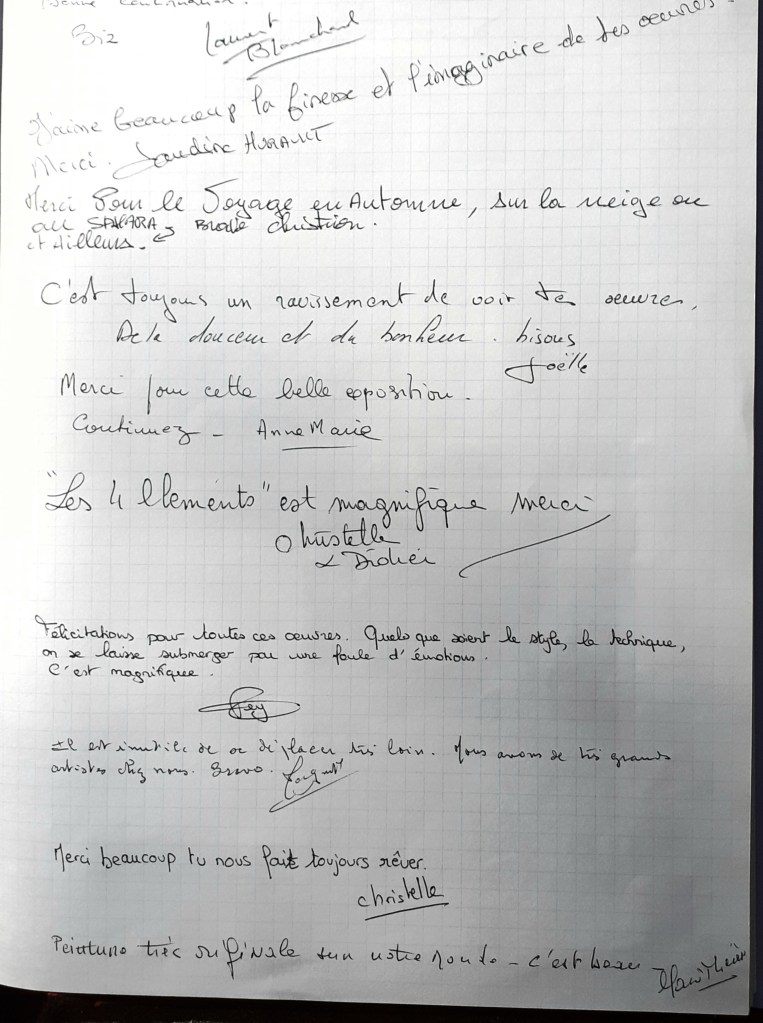 Bonne continuation.
Biz
Laurent
Blanchard
J'aime beaucoup la finesse et l'imaginaire de tes oeuvres.
Merci. Sandrine HURAULT
Merci Pour le Voyage en Automne, sur la neige ou
au SAHARA Christian.
et Ailleurs.
C'est toujours un ravissement de voir tes oeuvres,
De la douceur et du bonheur. bisous
Joëlle
Merci pour cette belle exposition.
Continuez - Anne Marie
"Les 4 Elements" est magnifique merci
Christelle
& Didier
Félicitations pour toutes ces œuvres. Quels que soient le style, la technique,
on se laisse submerger par une foule d'émotions.
C'est magnifique.
Il est inutile de se déplacer très loin. Nous avons de très grands
artistes chez nous. Bravo.
Merci beaucoup tu nous fait toujours rêver.
Christelle
Peinture très originale sur notre monde - c'est beau